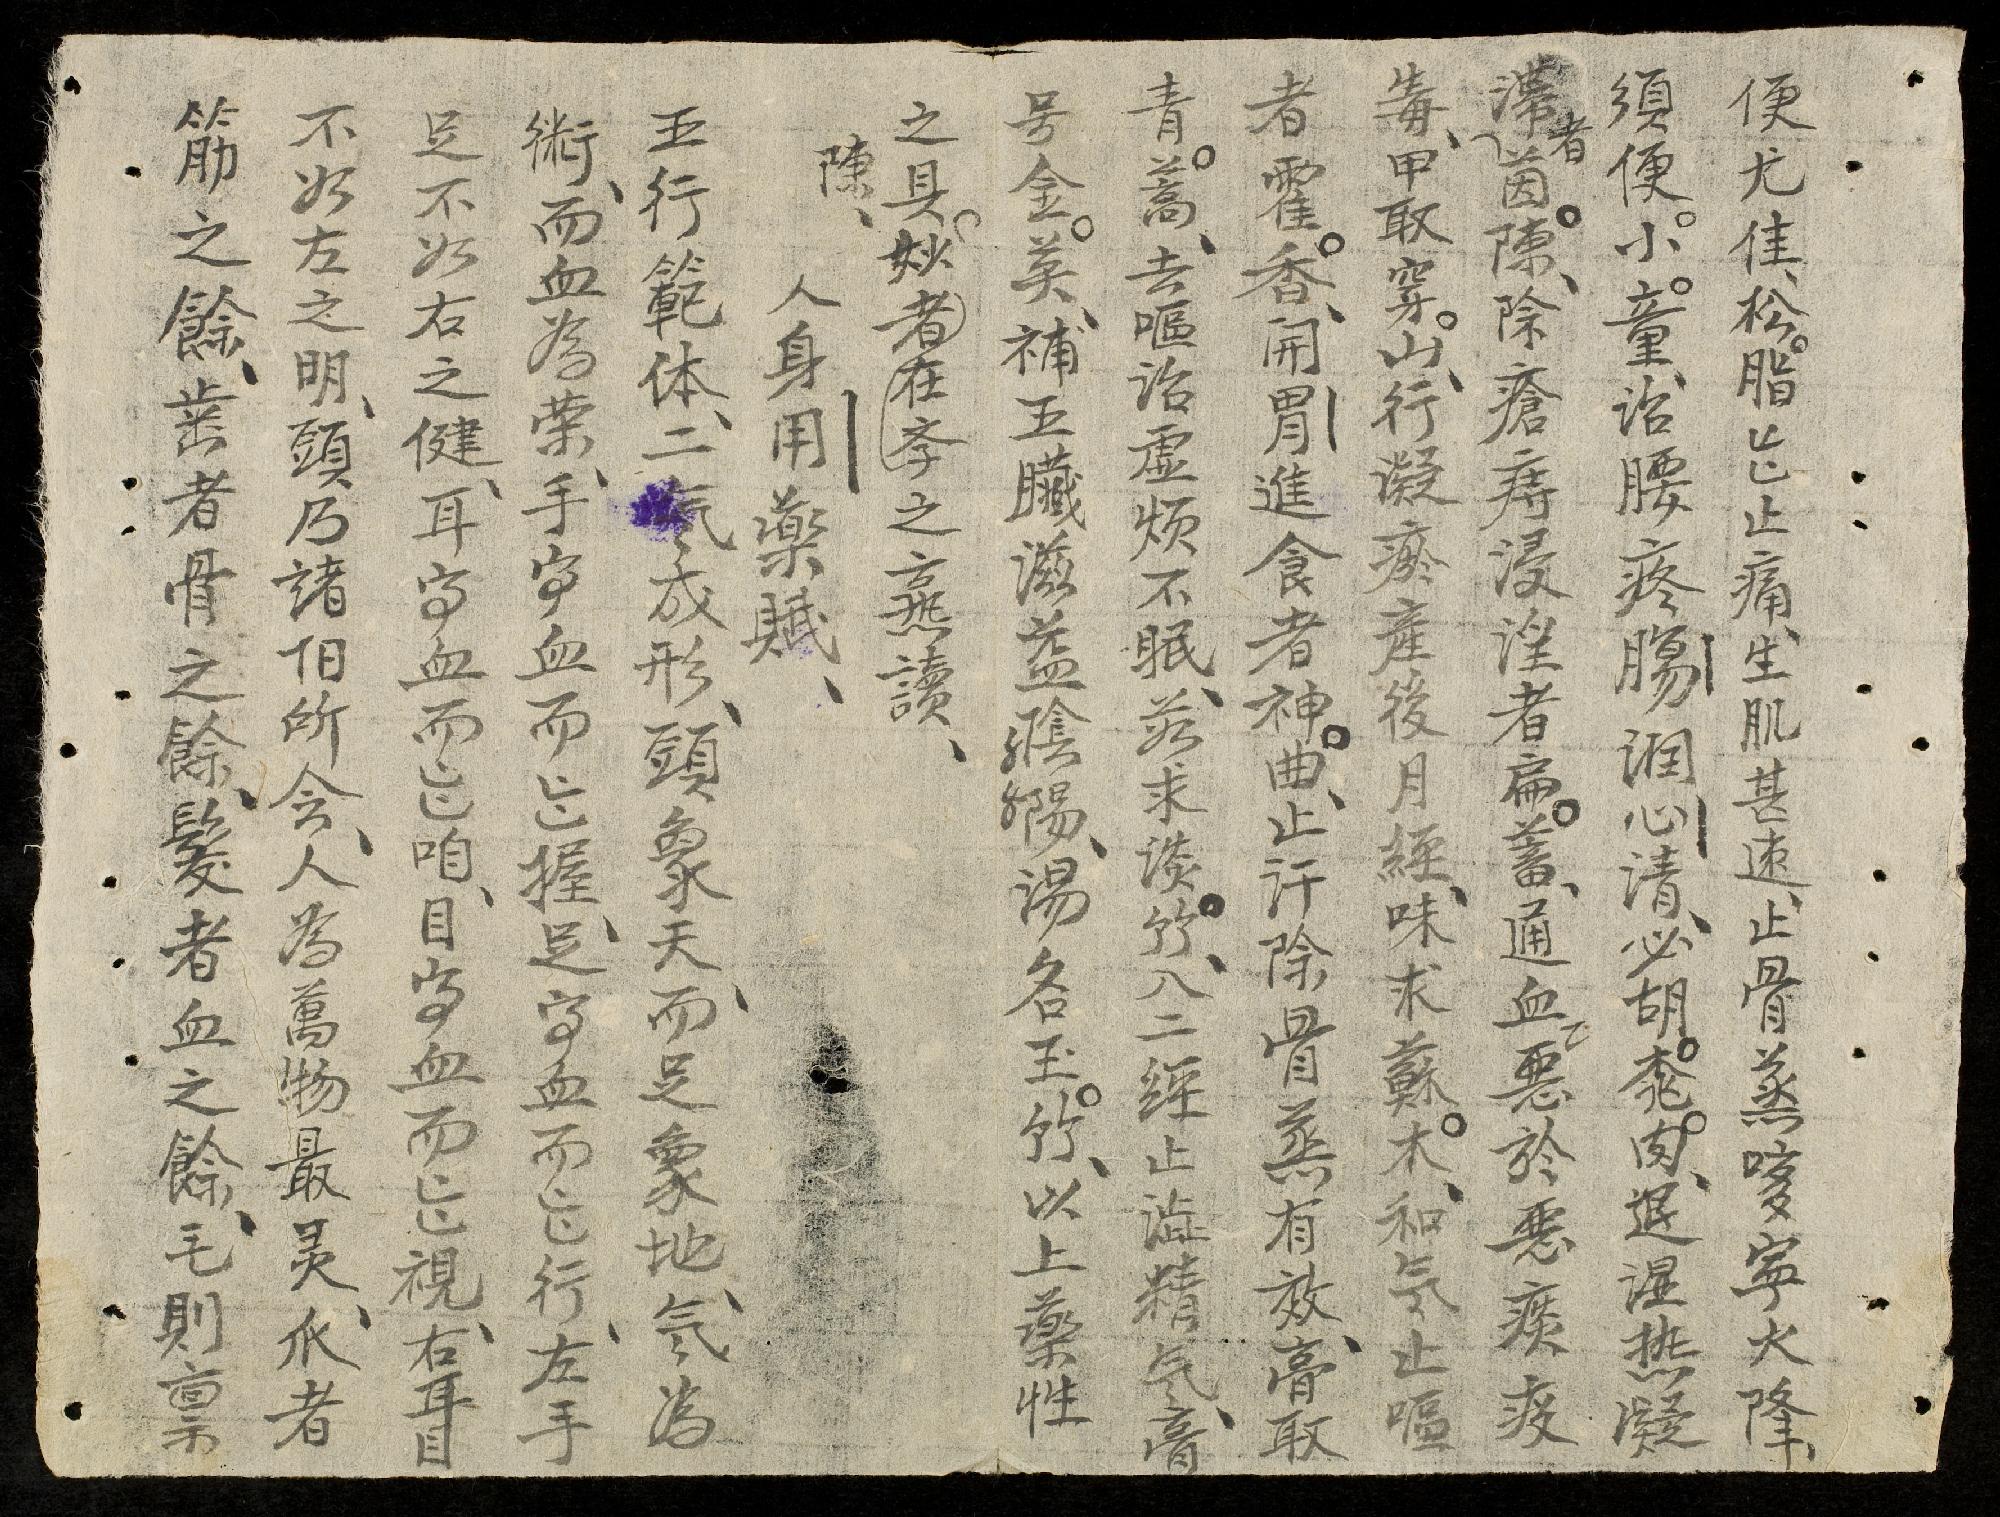 便尤佳、松脂能止痛、生肌甚速、止骨蒸咳嗽寧火降、
須便小童、治腰疼腸润心清、必胡黍肉、退湿热凝
滞者茵陳、除瘡痔浸淫者扁蓄、通血悪於悪痰疫
毒、甲取穿山、行凝瘀産後月經、味求蘇木、和気止嘔
者霍香、開胃進食者神曲、止汗除骨蒸有效、膏取
青蒿、去嘔治虚烦不眠、茲求淡竹、入二經止澁精気、膏
号金英、補五臟滋益陰陽、湯名玉竹、以上薬性
之具、妙者在李之熹讀、
陳、
人身用薬賦、
五行範体、二気成形、頭象天、而足象地、気為
術、而血為荣、手字血而能握、足字血而能行、左手
足不如右之健、耳字血而能咱、目字血而能視、右耳目
不如左之明、頭乃諸伯所会、人為萬物最灵、爪者
筋之餘、齒者骨之餘、髮者血之餘、毛則禀